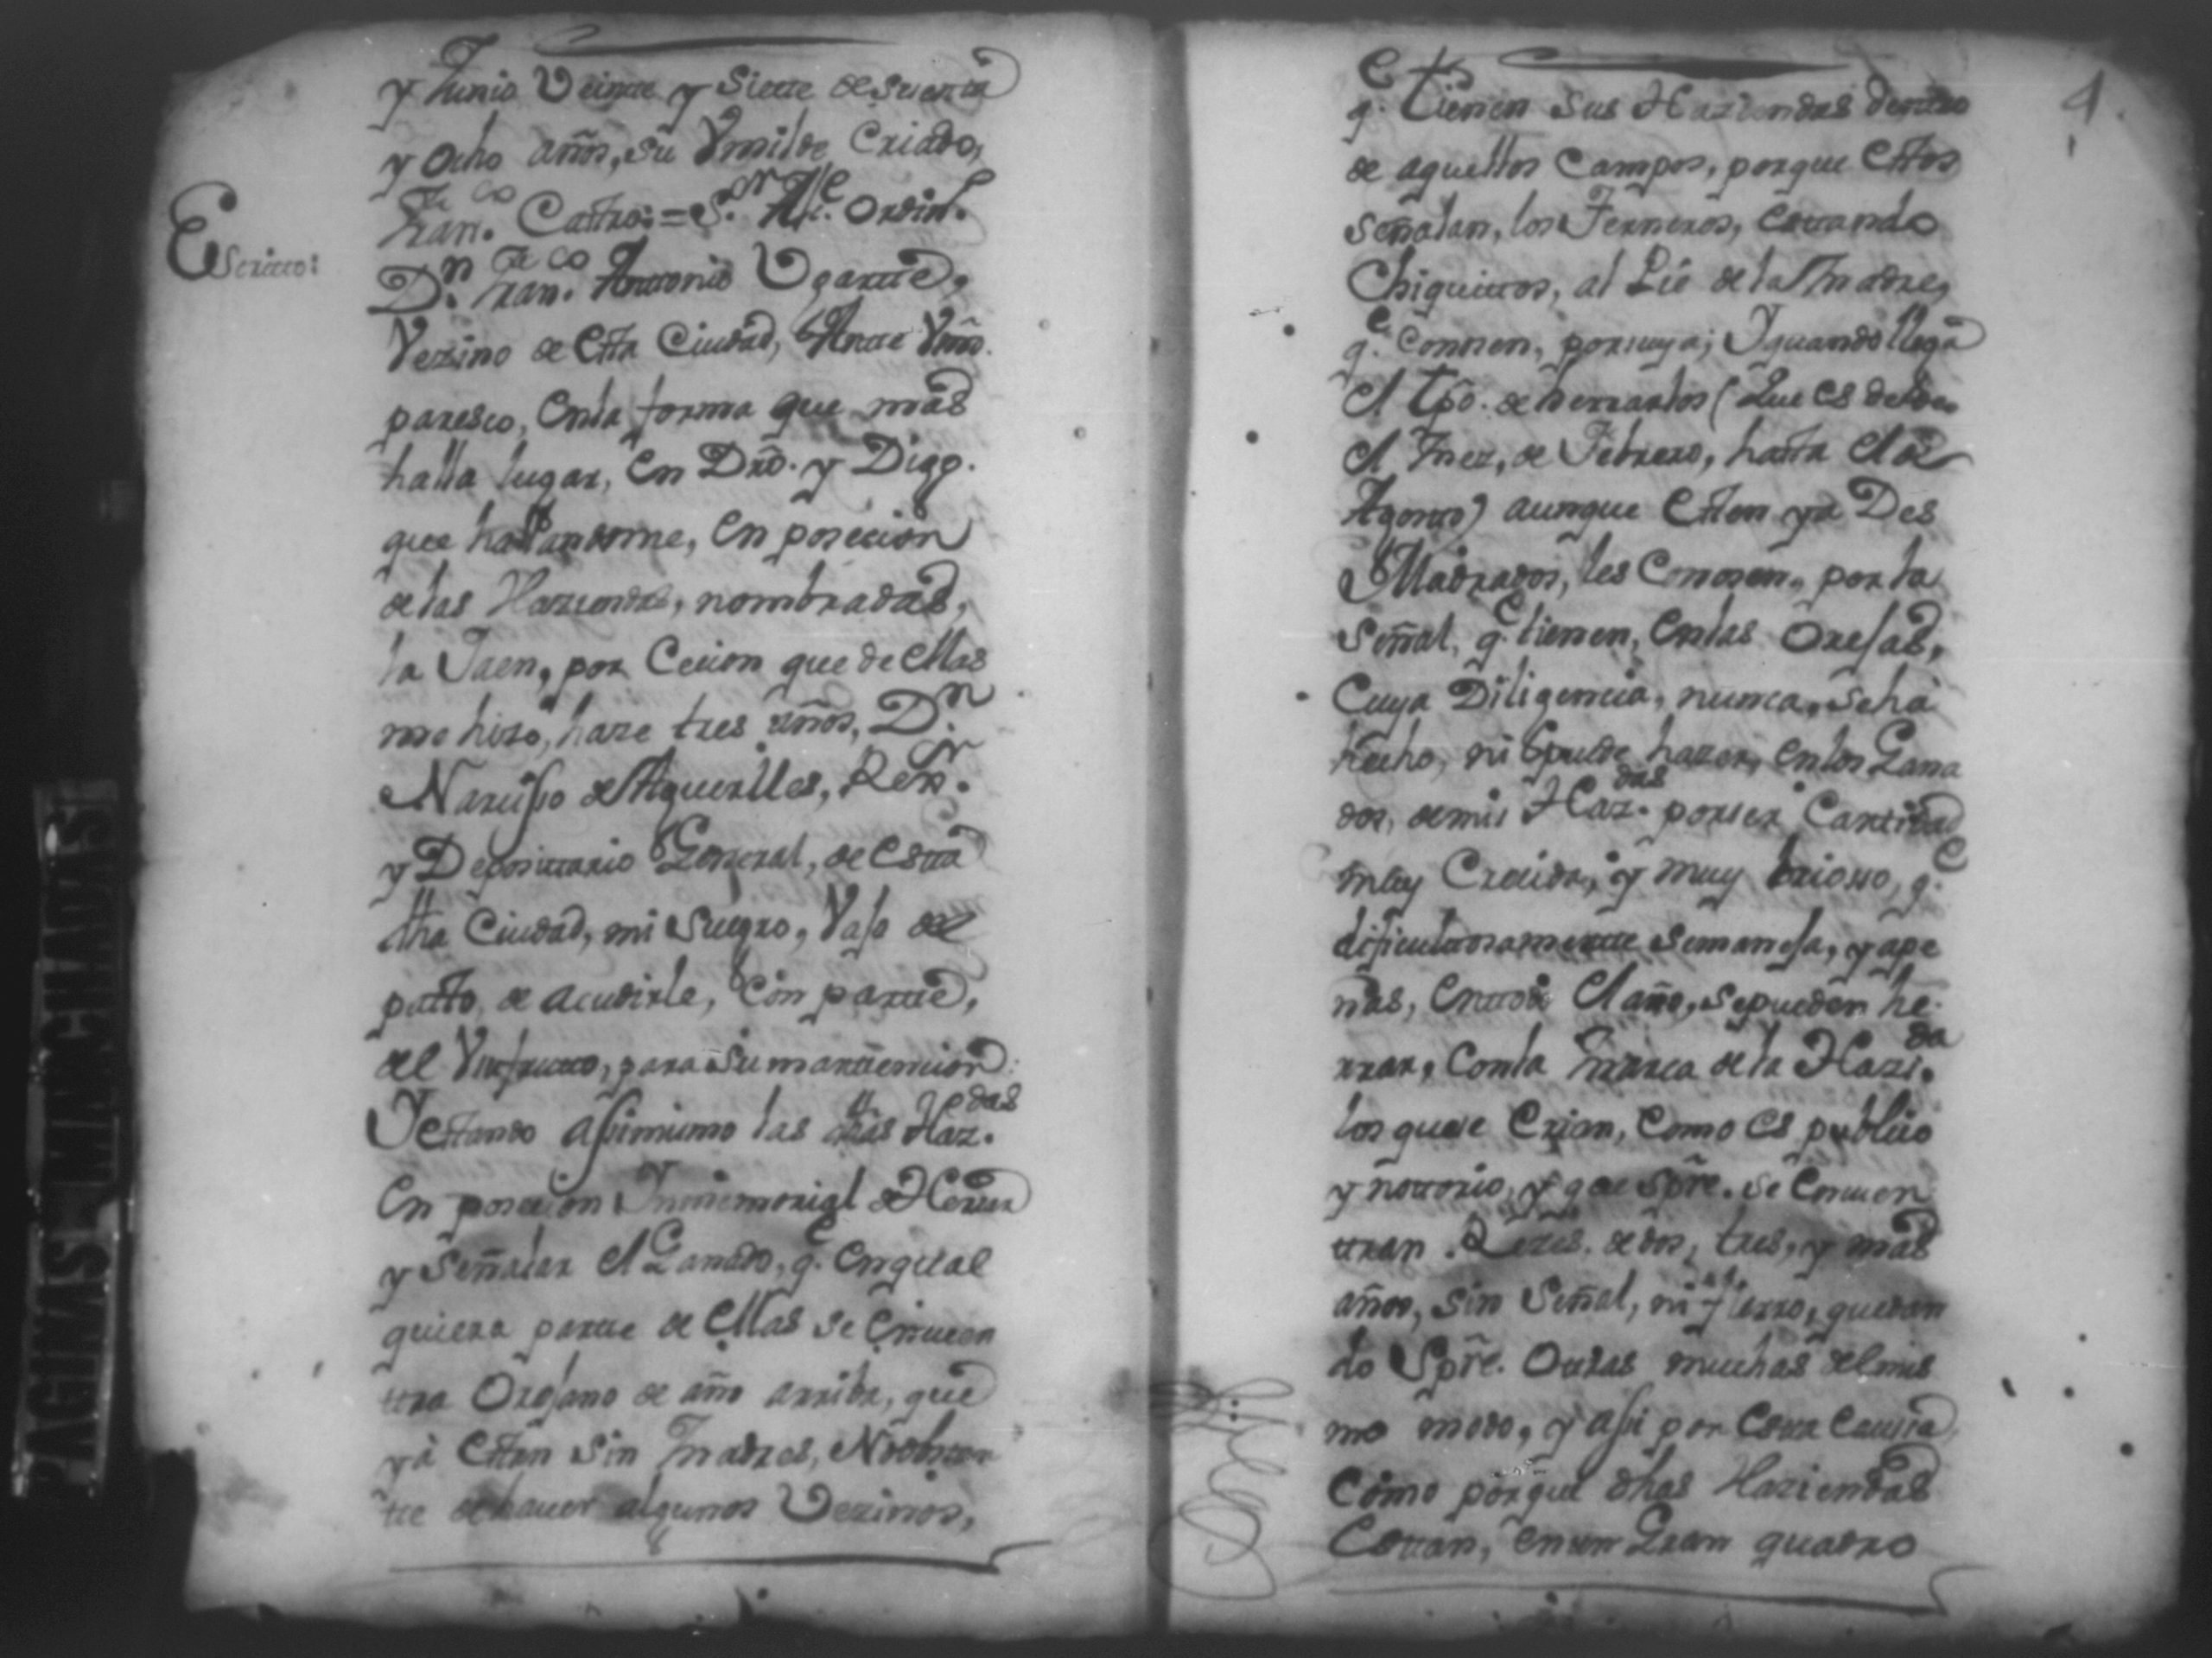 y Junio Veinte y Siette de Settenta
y Ocho años, su Vmilde Criado,
Fran.co Castro: = S.or Alc.e Ordin.o
Escritto:
D.n Fran.co Antonio Ugartte,
Vezino de Esta Ciudad, Antte Vmd.
paresco, En la forma que mas
halla lugar, En Dro. y Digo.
que hallandome, En posecion
de las Haziendas, nombradas,
la Jaen, por Cecion que de Ellas
me hizo, haze tres años, D.n
Narcisso de Arguelles, Rex.or
y Deposittario General, de Estta
dha Ciudad, mi Suegro, Vajo de
patto, de acudirle, Con partte,
del Vsufructto, para su manttencion:
Y Estando assimismo las dhas Haz.das
En posecion Inmemorial de Herrar
y Señalar El Ganado, q.e En qual
quiera partte de Ellas se Encuen
ttra Orejano de año arriba, que
ya Estan Sin Madres, No obstan
tte de haver algunos Vezinos,
4.
q.e tienen Sus Haziendas dentro
de aquellos Campos, porque Estos
Señalan, los Terneros, Esttando
Chiquittos, al Pie de la Madre,
q.e Connsen, por suya; Y quando llega
El tpo. de herrarlos (Que es desde
El Mez, de Febrero, hasta El de
Agosto) aunque Esten ya Des
Madrados, les Conosen, por la
Señal, q.e tienen, En las Orejas,
Cuya Diligencia, nunca, Se ha
hecho, ni Se puede hazer, En los Gana
dos, de mis Haz.das por ser Cantidad
muy Crecida, y muy brioso, q.e
dificulttosamentte Se maneja, y ape
nas, En ttodo El año, se pueden he
rrar, Con la Marca de la Hazi.da
los que se Crian, Como Es publico
y nottorio, y que Spre. Se Encuen
ttran Rezes. de dos, tres, y mas
años, Sin Señal, ni Fierro, quedan
do Spre. Ottras muchas del mis
mo modo, y assi por Estta Caussa,
Como porque dhas Haziendas
Esttan, En un Gran quadro
PAGINAS MANCHADAS